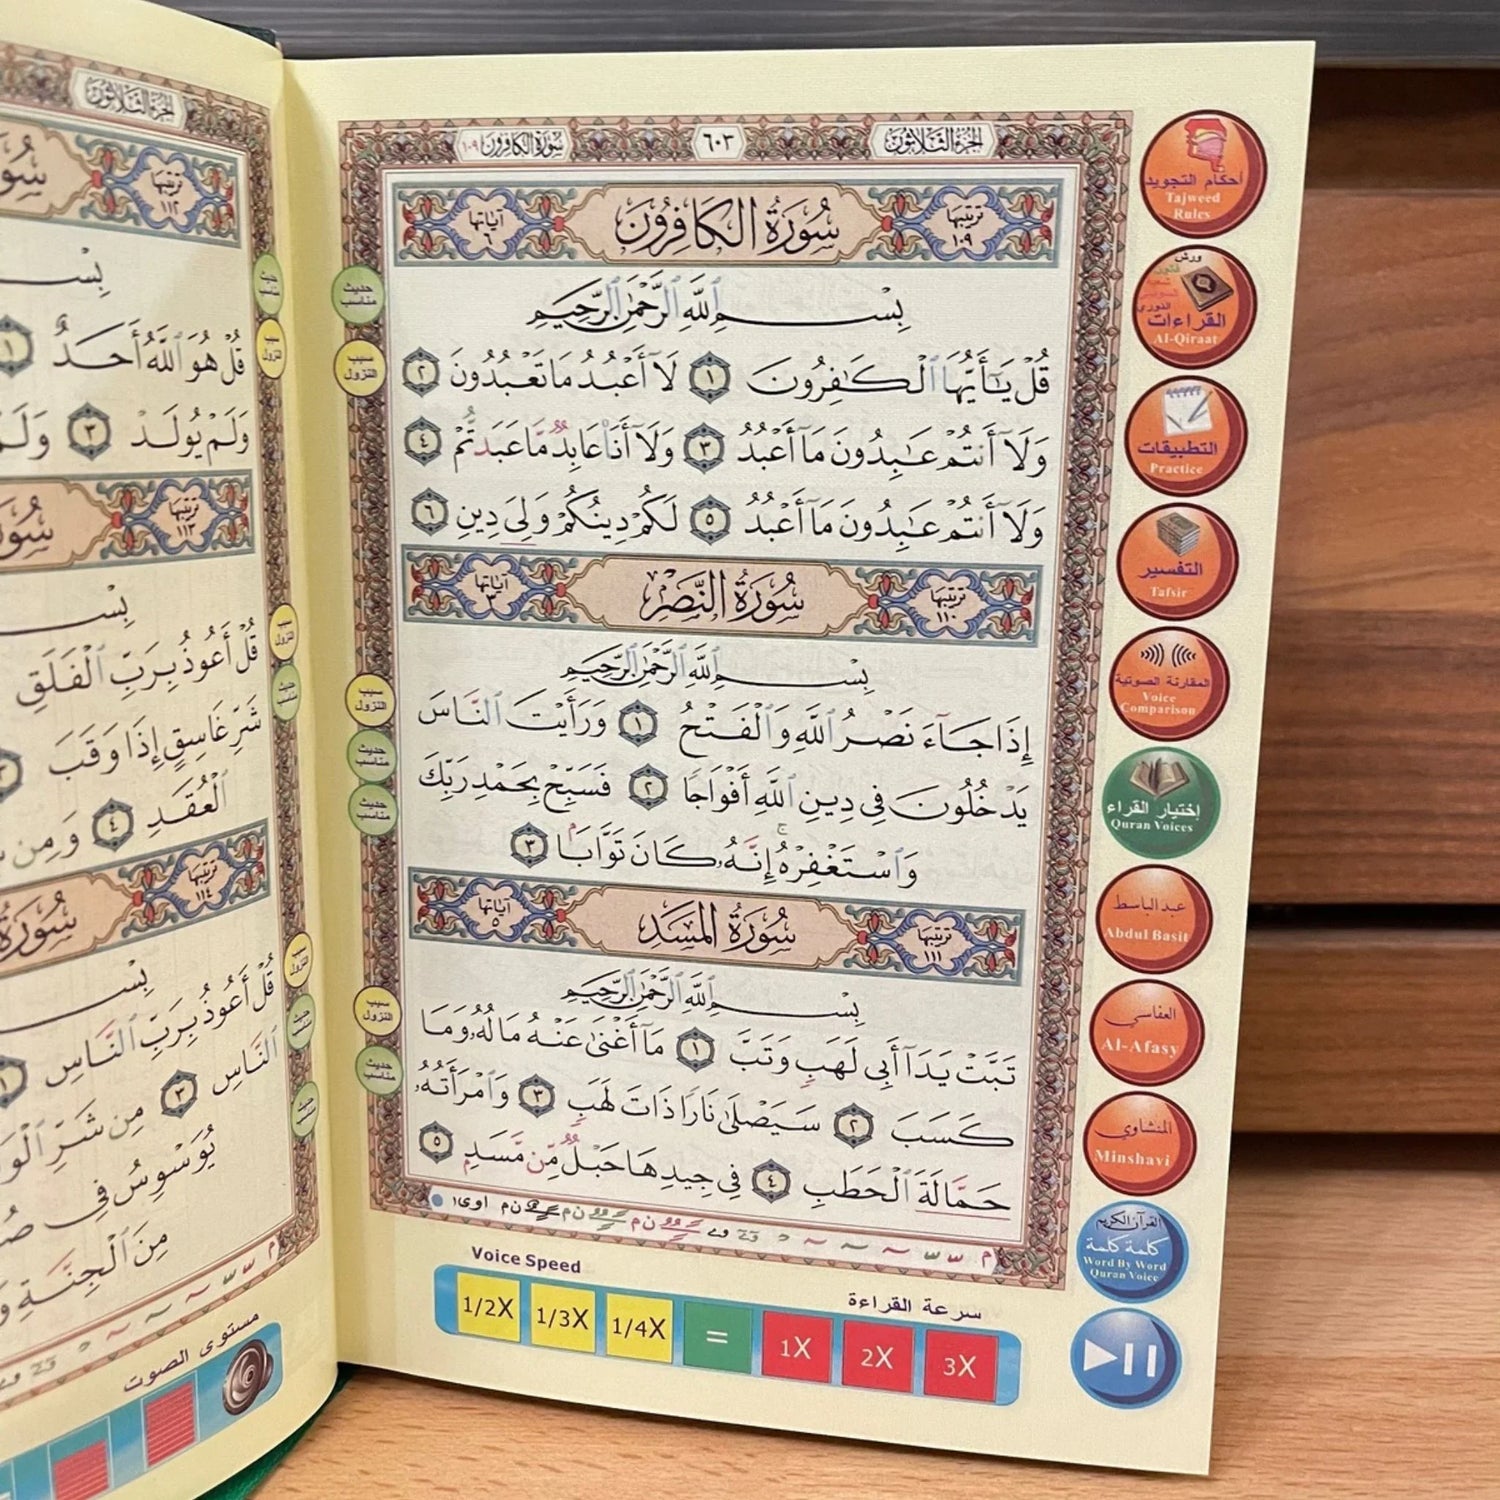 الجزء الثلاثون
٦٠٣
سورة الكافرون ١٠٩
ترتيبها ١٠٩
سُورَةُ الكَافِرُونَ
آياتها ٦
بِسْمِ ٱللَّهِ ٱلرَّحْمَٰنِ ٱلرَّحِيمِ
قُلْ يَٰٓأَيُّهَا ٱلْكَٰفِرُونَ ١ لَآ أَعْبُدُ مَا تَعْبُدُونَ ٢
وَلَآ أَنتُمْ عَٰبِدُونَ مَآ أَعْبُدُ ٣ وَلَآ أَنَا۠ عَابِدٌ مَّا عَبَدتُّمْ ٤
وَلَآ أَنتُمْ عَٰبِدُونَ مَآ أَعْبُدُ ٥ لَكُمْ دِينُكُمْ وَلِىَ دِينِ ٦
ترتيبها ١١٠
سُورَةُ النَّصْرِ
آياتها ٣
بِسْمِ ٱللَّهِ ٱلرَّحْمَٰنِ ٱلرَّحِيمِ
إِذَا جَآءَ نَصْرُ ٱللَّهِ وَٱلْفَتْحُ ١ وَرَأَيْتَ ٱلنَّاسَ
يَدْخُلُونَ فِى دِينِ ٱللَّهِ أَفْوَاجًا ٢ فَسَبِّحْ بِحَمْدِ رَبِّكَ
وَٱسْتَغْفِرْهُ إِنَّهُۥ كَانَ تَوَّابًۢا ٣
ترتيبها ١١١
سُورَةُ المَسَدِ
آياتها ٥
بِسْمِ ٱللَّهِ ٱلرَّحْمَٰنِ ٱلرَّحِيمِ
تَبَّتْ يَدَآ أَبِى لَهَبٍ وَتَبَّ ١ مَآ أَغْنَىٰ عَنْهُ مَالُهُۥ وَمَا
كَسَبَ ٢ سَيَصْلَىٰ نَارًا ذَاتَ لَهَبٍ ٣ وَٱمْرَأَتُهُۥ
حَمَّالَةَ ٱلْحَطَبِ ٤ فِى جِيدِهَا حَبْلٌ مِّن مَّسَدٍۭ ٥
حديث مناسب
سبب النزول
سبب النزول
حديث مناسب
حديث مناسب
سبب النزول
حديث مناسب
Voice Speed
سرعة القراءة
1/2X 1/3X 1/4X = 1X 2X 3X
أحكام التجويد
Tajweed
Rules
ورش
قالون
شعبة
السوسي
الدوري
القراءات
Al-Qiraat
التطبيقات
Practice
التفسير
Tafsir
المقارنة الصوتية
Voice
Comparison
إختيار القراء
Quran Voices
عبد الباسط
Abdul Basit
العفاسي
Al-Afasy
المنشاوي
Minshavi
القرآن الكريم
كلمة كلمة
Word By Word
Quran Voice
الجزء الثلاثون
ترتيبها ١١٢
سو
بِسْ
قُلْ هُوَ ٱللَّهُ أَحَدٌ ١
وَلَمْ يُولَدْ ٣ وَلَمْ
ترتيبها ١١٣
سُو
بِسْ
قُلْ أَعُوذُ بِرَبِّ ٱلْفَلَقِ
شَرِّ غَاسِقٍ إِذَا وَقَبَ
ٱلْعُقَدِ ٤ وَمِن
ترتيبها ١١٤
سُورَةُ
بِسْ
قُلْ أَعُوذُ بِرَبِّ ٱلنَّاسِ ١
ٱلنَّاسِ ٣ مِن شَرِّ ٱلْوَ
يُوَسْوِسُ فِى صُ
مِنَ ٱلْجِنَّةِ وَ
حديث مناسب
سبب النزول
سبب النزول
حديث مناسب
سبب النزول
حديث مناسب
حديث مناسب
مستوى الصوت